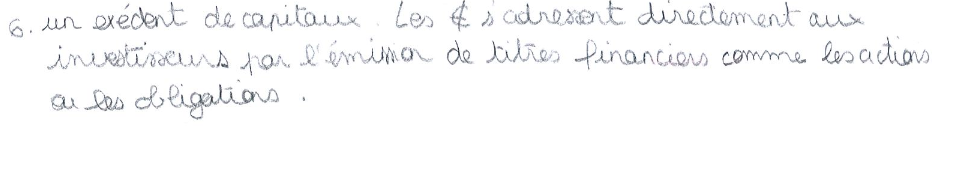 6. un exédent de capitaux. Les € s'adressent directement aux
investisseurs par l'émission de titres financiers comme les actions
ou les obligations.